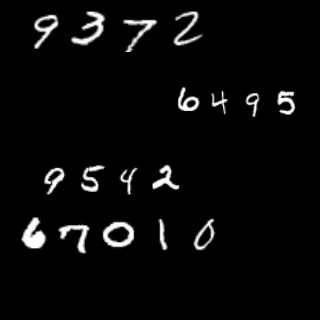 9372
6495
9542
67010